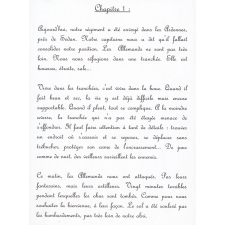 Chapitre 1 :
Aujourd'hui, notre régiment a été envoyé dans les Ardennes,
près de Sedan. Notre capitaine nous a dit qu'il fallait
consolider notre position. Les Allemands ne sont pas très
loin. Nous nous réfugions dans une tranchée. Elle est
boueuse, étroite, sale...
Vivre dans les tranchées, c'est vivre dans la boue. Quand il
fait beau et sec, la vie y est déjà difficile mais encore
supportable. Quand il pleut, tout se complique. A la moindre
averse, la tranchée qui n'a pas été étayée menace de
s'effondrer. Il faut faire attention à tant de détails : trouver
un endroit où s'asseoir et se reposer, se déplacer sans
trébucher, protéger son arme de l'encrassement... De jour
comme de nuit, des veilleurs surveillent les ennemis.
Ce matin, les Allemands nous ont attaqués. Pas leurs
fantassins, mais leurs artilleurs. Vingt minutes terribles
pendant lesquelles les obus sont tombés. Comme pour nous
souhaiter la bienvenue, à leur façon. Le sol a été soulevé par
les bombardements, pas très loin de notre abri.